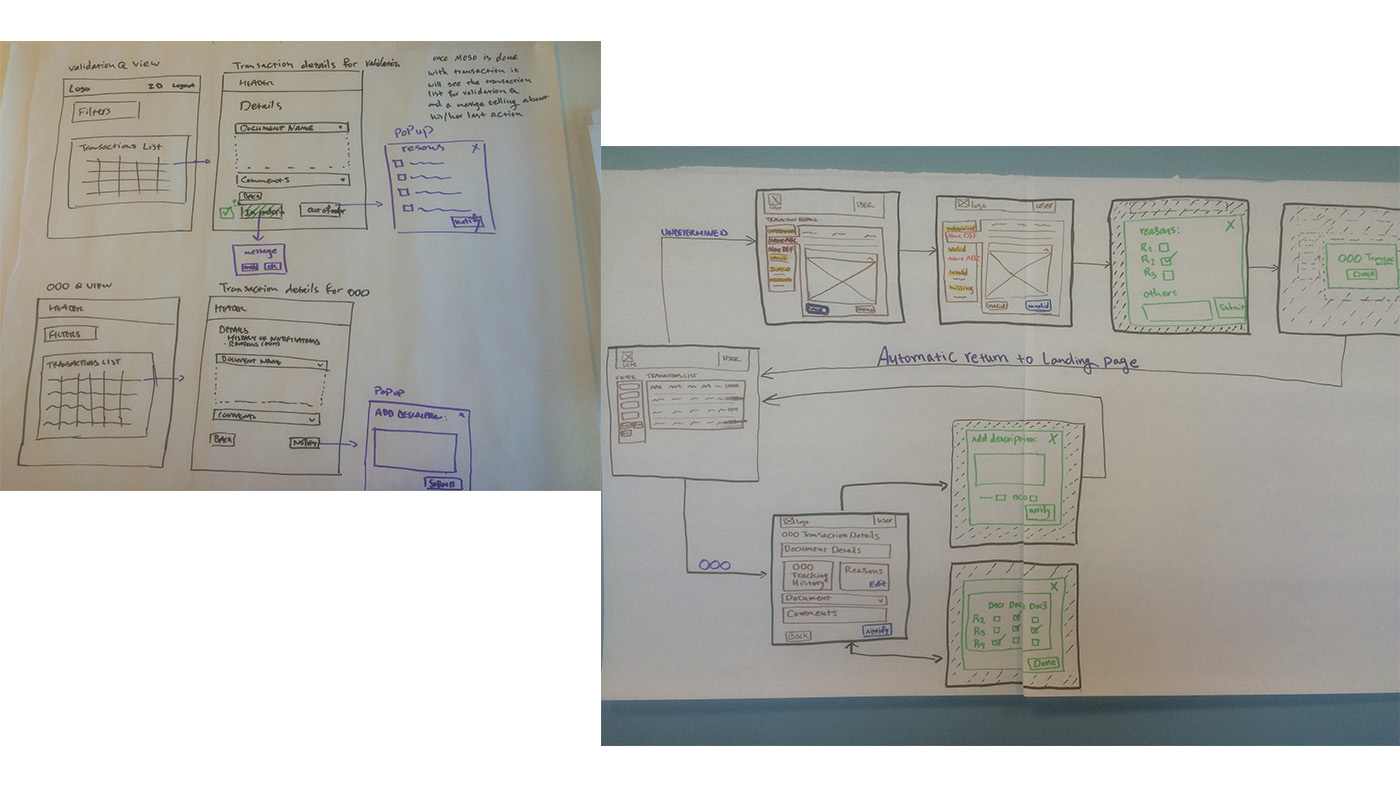 validation Q view
Logo
ID
Logout
Filters
Transactions List
Transaction details for validation
HEADER
Details
DOCUMENT NAME
Comments
Back
once MOSO is done
with transaction it
will see the transaction
list for validation Q
and a message telling about
his/her last action
PopUp
X
notify
message
ok
OOO Q VIEW
HEADER
FILTERS
TRANSACTIONS LIST
Transaction details for OOO
HEADER
DETAILS
- HISTORY OF NOTIFICATIONS
DOCUMENT NAME
COMMENTS
BACK
NOTIFY
PopUp
X
SUBMIT
UNDETERMINED
Logo
USER
Name ABC
Name DEF
Logo
USER
Name DEF
valid
Name ABC
Invalid
missing
valid
invalid
reasons:
X
R1
R2
R3
others
Submit
OOO Transac
Done
Automatic return to landing page
Logo
USER
TRANSACTIONS LIST
OOO
Logo
User
OOO Transaction Details
Document Details
OOO
Tracking
History
Reasons
Edit
Document
Comments
Back
Notify
Add description:
X
Notify
X
Doc1
Doc2
Doc3
R2
R3
R4
Done